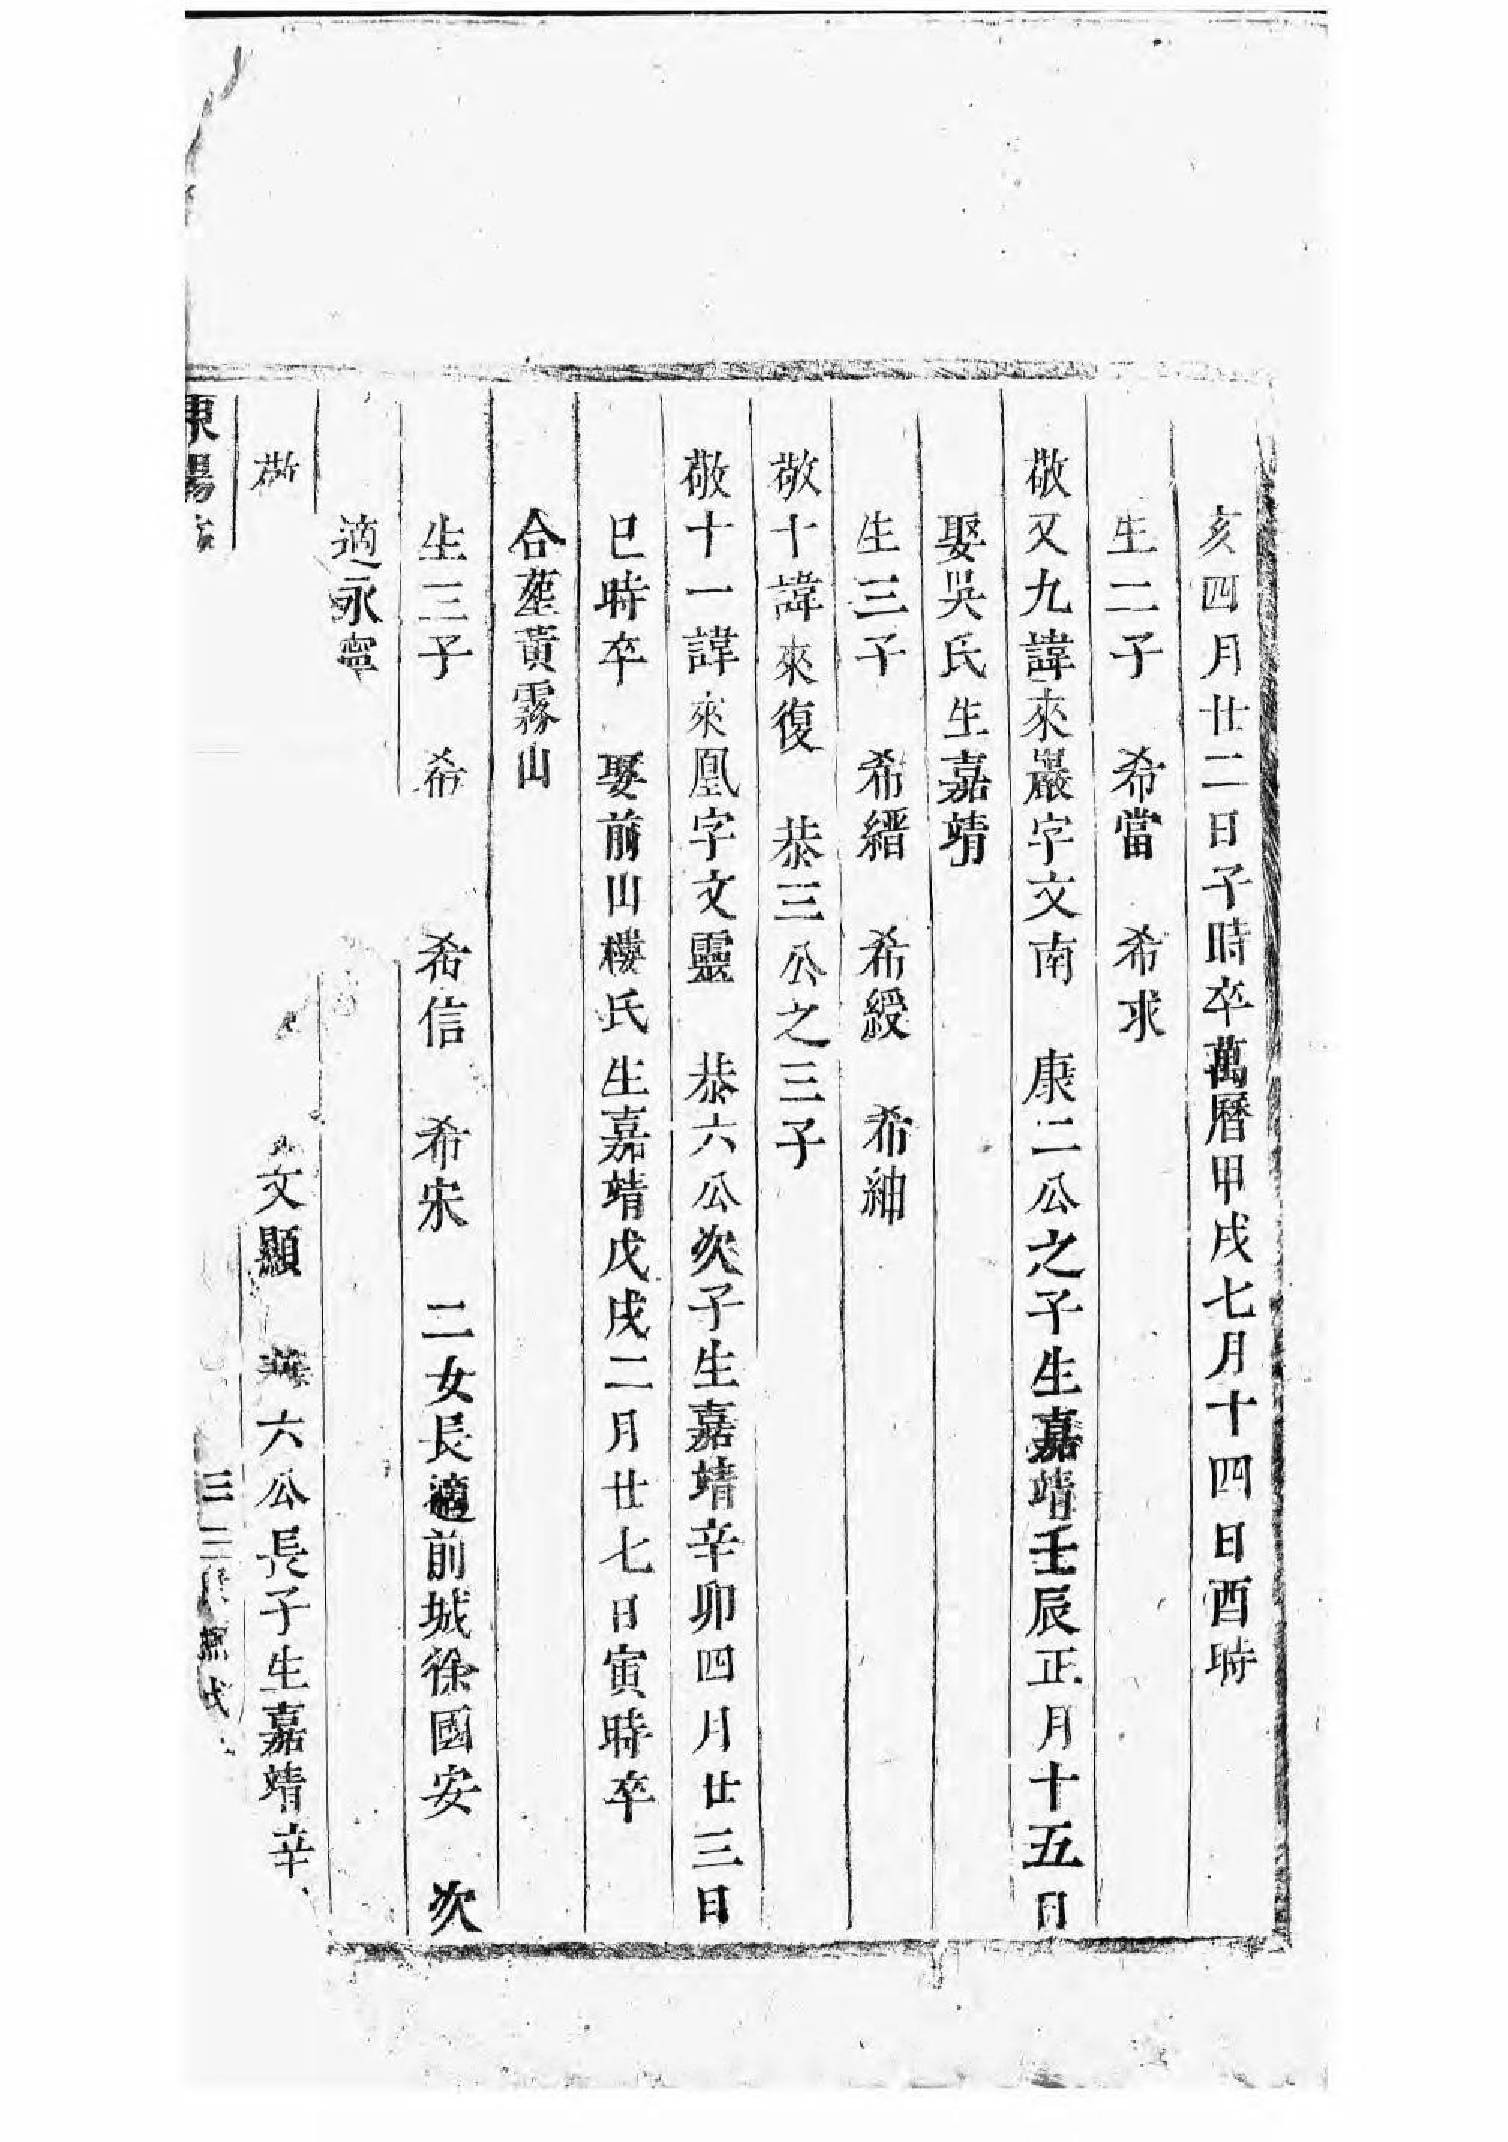 亥四月廿二日子時卒萬曆甲戌七月十四日酉時
生二子 希當 希求
敬又九諱來巖字文南 康二公之子生嘉靖壬辰正月十五日
娶吳氏生嘉靖
生三子 希縉 希綬 希紳
敬十諱來復 恭三公之三子
敬十一諱來凰字文靈 恭六公次子生嘉靖辛卯四月廿三日
巳時卒 娶前山樓氏生嘉靖戊戌二月廿七日寅時卒
合塟黃霧山
生三子 希 希信 希宋 二女長適前城徐國安 次
適永寧
敬 文顯 六公長子生嘉靖辛
東陽